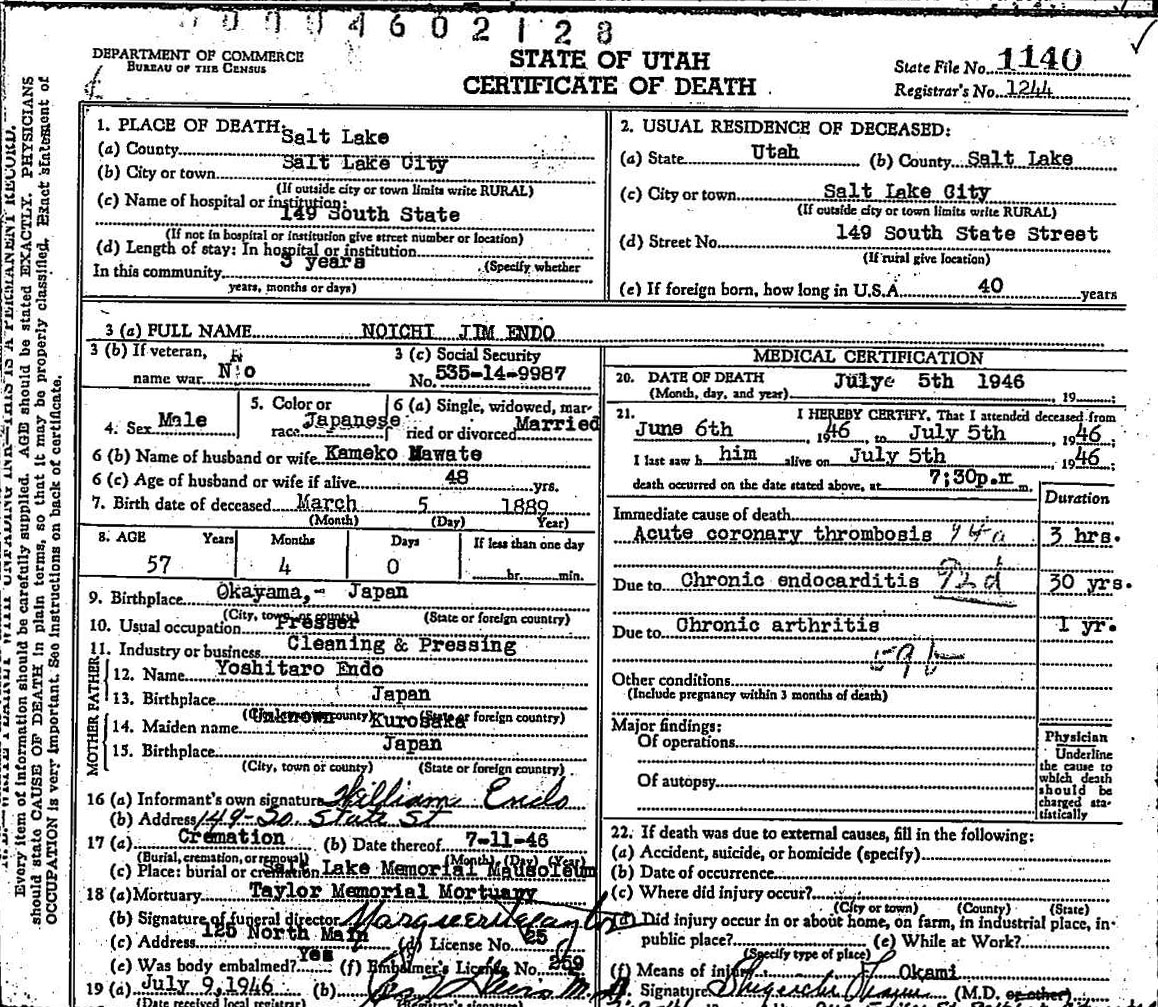 00004602128
DEPARTMENT OF COMMERCE
BUREAU OF THE CENSUS
STATE OF UTAH
CERTIFICATE OF DEATH
State File No. 1140
Registrar's No. 1244
Every item of information should be carefully supplied. AGE should be stated EXACTLY. PHYSICIANS
should state CAUSE OF DEATH in plain terms, so that it may be properly classified. Exact statement of
OCCUPATION is very important. See instructions on back of certificate.
1. PLACE OF DEATH:
(a) County Salt Lake
(b) City or town Salt Lake City
(If outside city or town limits write RURAL)
(c) Name of hospital or institution:
149 South State
(If not in hospital or institution give street number or location)
(d) Length of stay: In hospital or institution
(Specify whether
In this community 3 years
years, months or days)
2. USUAL RESIDENCE OF DECEASED:
(a) State Utah (b) County Salt Lake
(c) City or town Salt Lake City
(If outside city or town limits write RURAL)
(d) Street No. 149 South State Street
(If rural give location)
(e) If foreign born, how long in U.S.A. 40 years
3 (a) FULL NAME NOICHI JIM ENDO
3 (b) If veteran,
name war No
3 (c) Social Security
No. 535-14-9987
4. Sex Male
5. Color or
race Japanese
6 (a) Single, widowed, mar-
ried or divorced Married
6 (b) Name of husband or wife Kameko Mawate
6 (c) Age of husband or wife if alive 48 yrs.
7. Birth date of deceased March 5 1889
(Month) (Day) Year)
8. AGE Years Months Days If less than one day
57 4 0 hr. min.
9. Birthplace Okayama,- Japan
(City, town, or county) (State or foreign country)
10. Usual occupation Presser
11. Industry or business Cleaning & Pressing
FATHER
12. Name Yoshitaro Endo
13. Birthplace Japan
(City, town or county) (State or foreign country)
MOTHER
14. Maiden name Unknown Kurosaka
15. Birthplace Japan
(City, town or county) (State or foreign country)
16 (a) Informant's own signature William Endo
(b) Address 149-So. State St
17 (a) Cremation (b) Date thereof 7-11-46
(Burial, cremation, or removal) (Month) (Day) (Year)
(c) Place: burial or cremation Salt Lake Memorial Mausoleum
18 (a) Mortuary Taylor Memorial Mortuary
(b) Signature of funeral director
(c) Address 125 North Main (d) License No. 25
(e) Was body embalmed? Yes (f) Embalmer's License No. 259
19 (a) July 9, 1946 (b)
(Date received local registrar)
MEDICAL CERTIFICATION
20. DATE OF DEATH Julye 5th 1946
(Month, day, and year) 19
21. I HEREBY CERTIFY, That I attended deceased from
June 6th, 1946, to July 5th, 1946;
I last saw h him alive on July 5th, 1946;
death occurred on the date stated above, at 7;30p.m m.
Duration
Immediate cause of death
Acute coronary thrombosis 94a 3 hrs.
Due to Chronic endocarditis 92d 30 yrs.
Due to Chronic arthritis 1 yr.
59b
Other conditions
(Include pregnancy within 3 months of death)
Major findings:
Of operations
Of autopsy
Physician
Underline
the cause to
which death
should be
charged sta-
tistically
22. If death was due to external causes, fill in the following:
(a) Accident, suicide, or homicide (specify)
(b) Date of occurrence
(c) Where did injury occur?
(City or town) (County) (State)
(d) Did injury occur in or about home, on farm, in industrial place, in-
public place? (e) While at Work?
(Specify type of place)
(f) Means of injury Okami
Signature (M.D. or other)